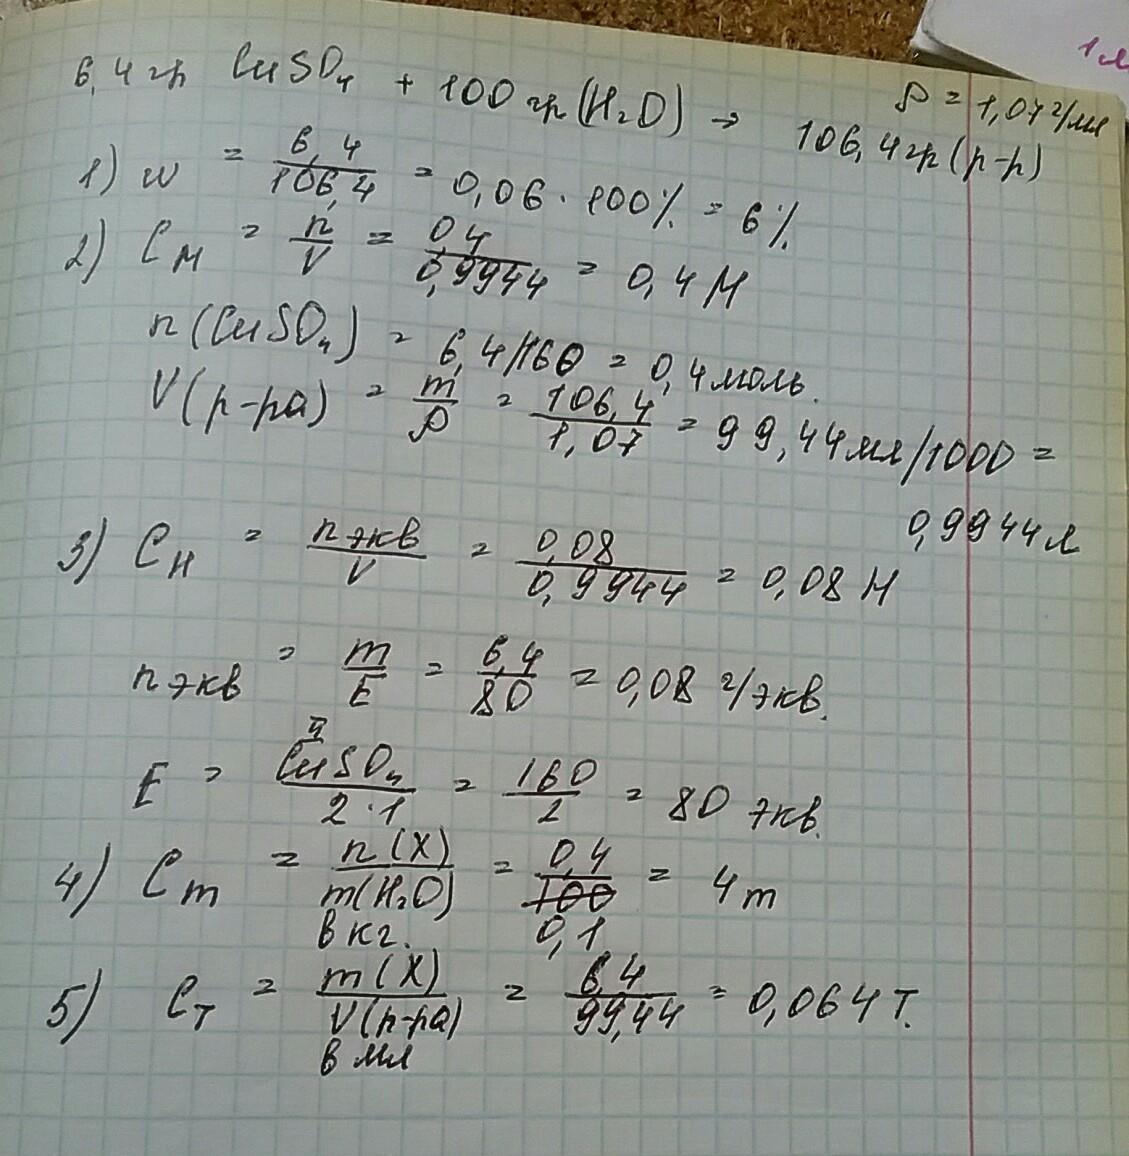 6,4 гр CuSO₄ + 100 гр (H₂O) → 106,4 гр (р-р)
ρ = 1,07 г/мл
1) w = 6,4/106,4 = 0,06 · 100% = 6%
2) Cм = n/V = 0,4/0,9944 = 0,4 М
n (CuSO₄) = 6,4/160 = 0,4 моль.
V (р-ра) = m/ρ = 106,4/1,07 = 99,44 мл/1000 =
0,9944 л
3) Cн = n экв/V = 0,08/0,9944 = 0,08 Н
n экв = m/E = 6,4/80 = 0,08 г/экв.
E = CuSO₄/2·1 = 160/2 = 80 экв.
4) Cm = n (X)/m(H₂O) = 0,4/100 = 4 m
в кг. 0,1
5) Cт = m (X)/V(р-ра) = 6,4/99,44 = 0,064 Т.
в мл